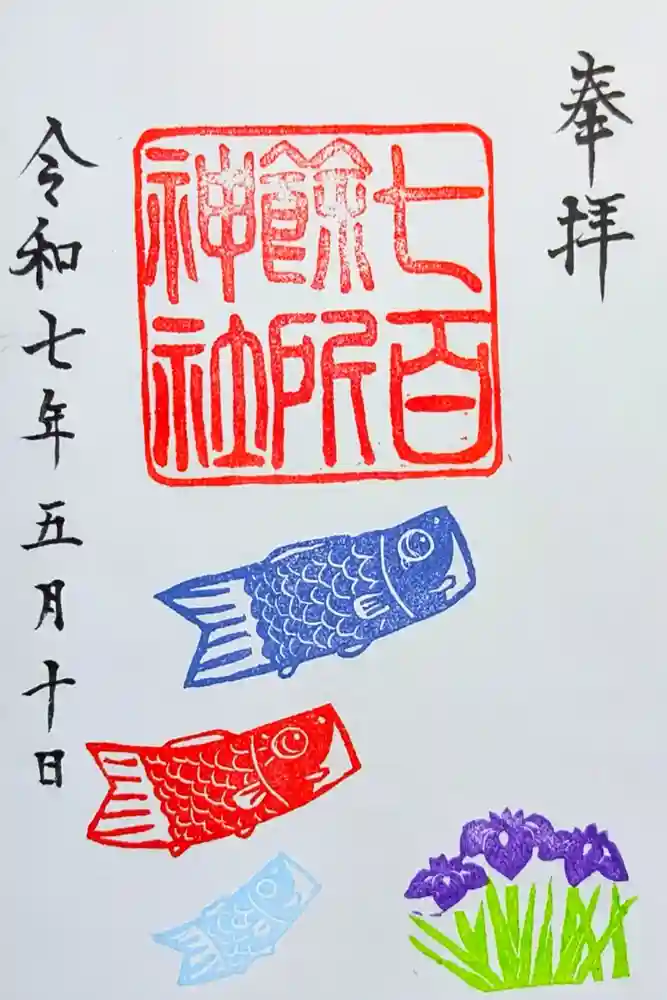 奉拝
七百
餘所
神社
令和七年五月十日